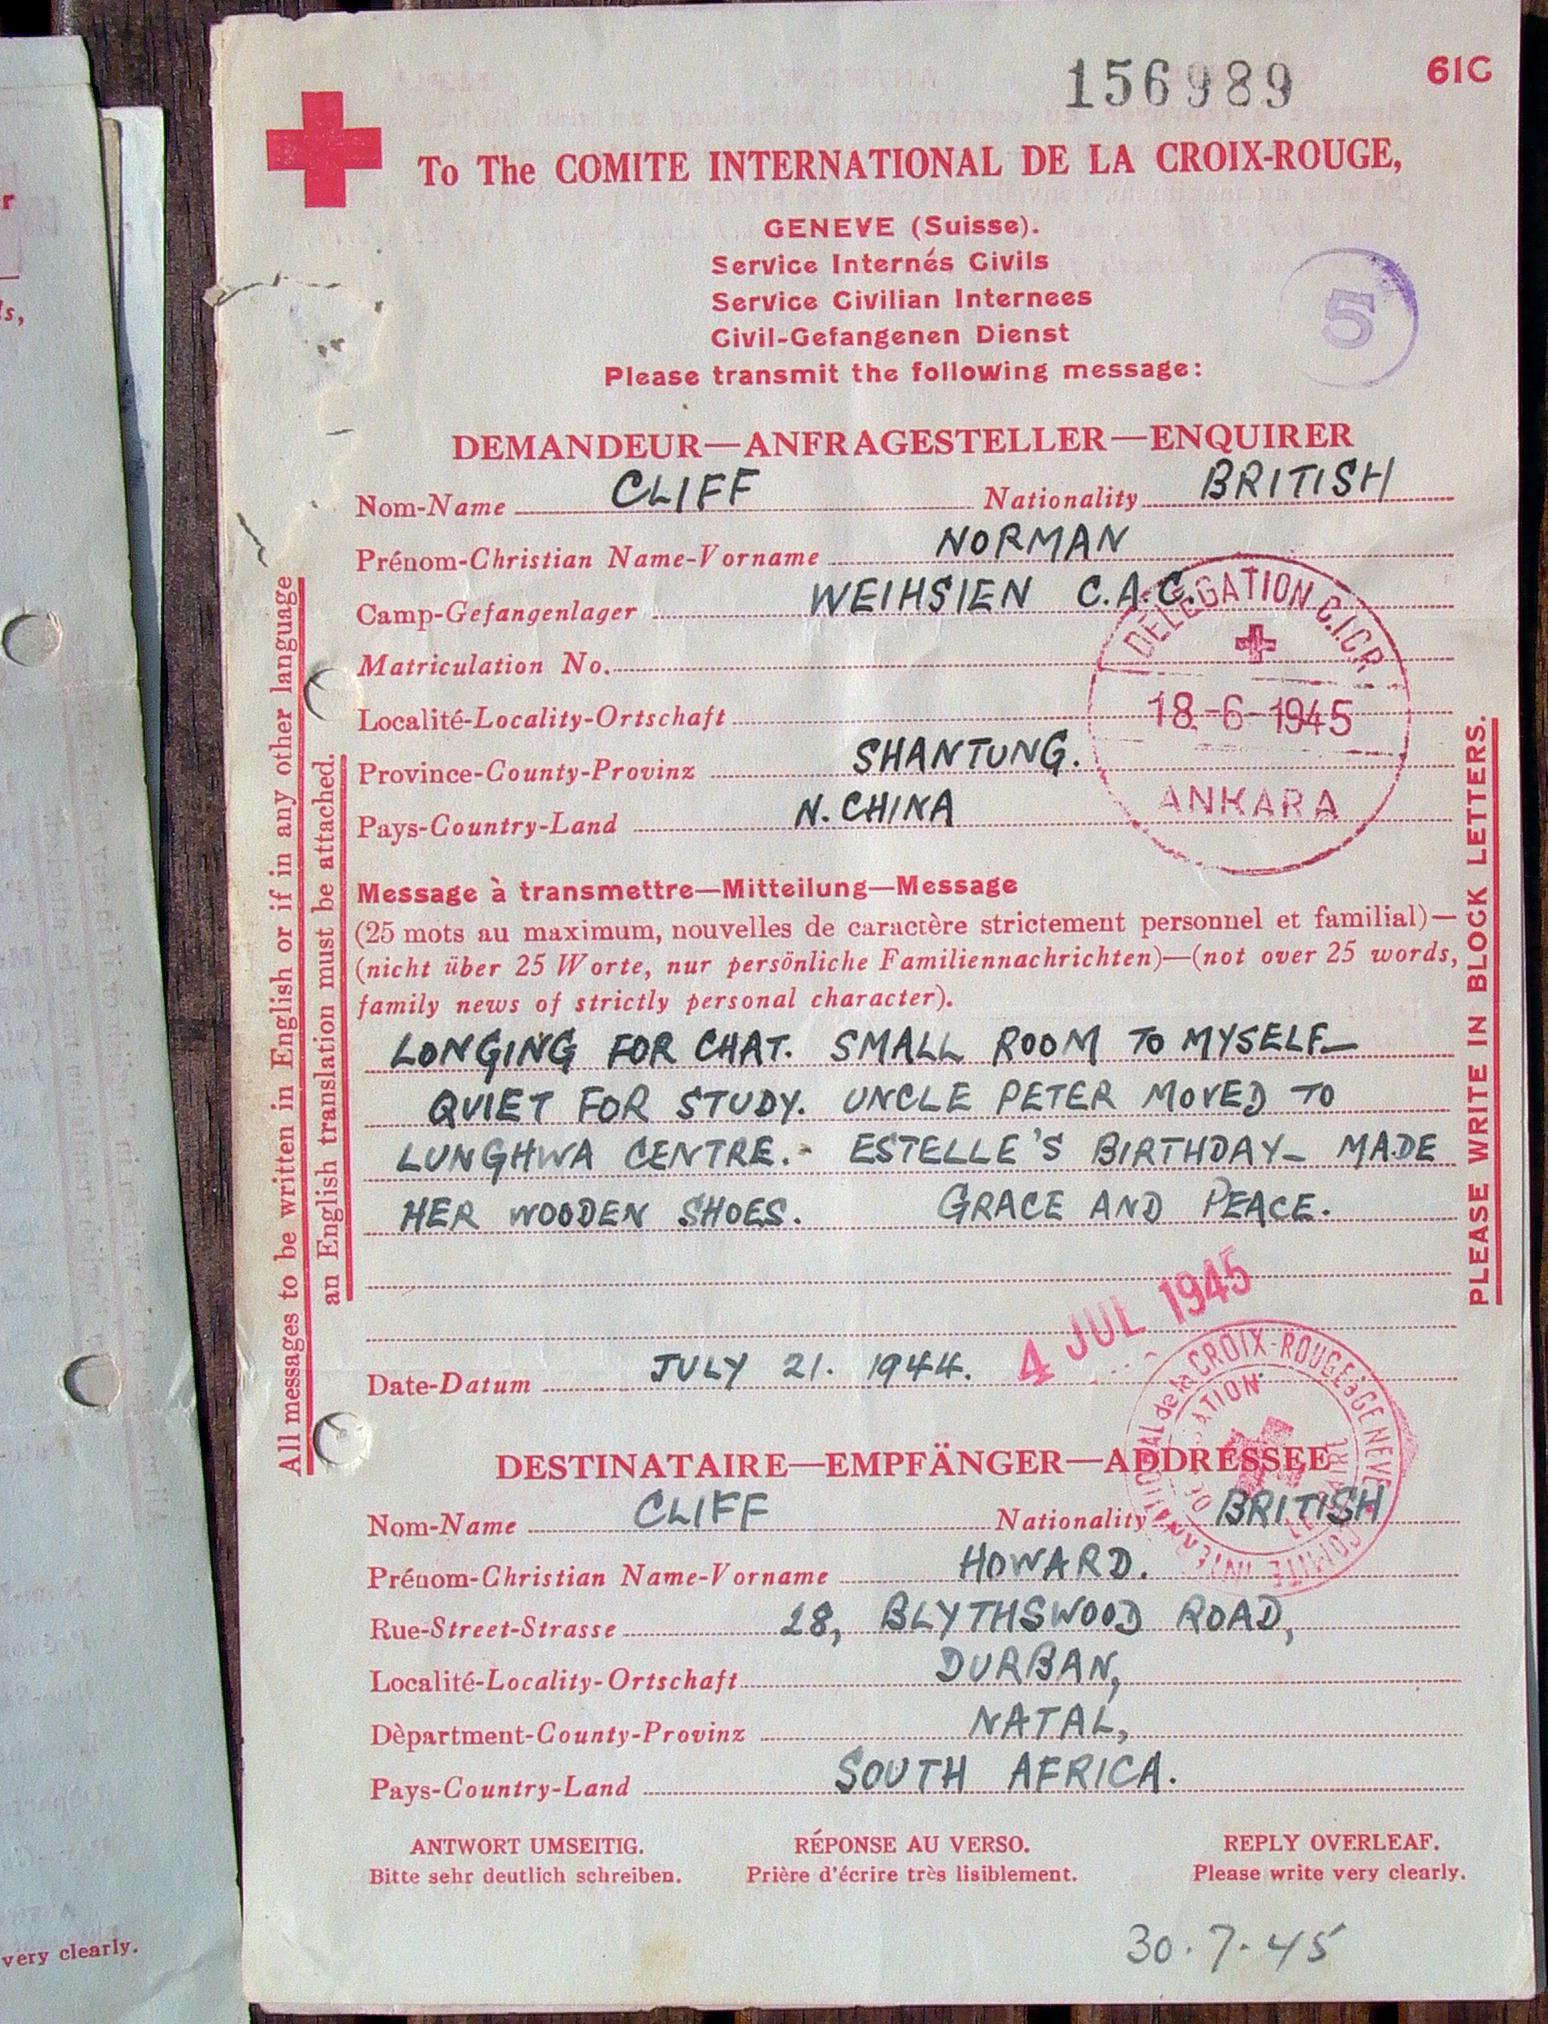 156989
61C
To The COMITE INTERNATIONAL DE LA CROIX-ROUGE,
GENEVE (Suisse).
Service Internés Civils
Service Civilian Internees
Civil-Gefangenen Dienst
Please transmit the following message:
5
DEMANDEUR—ANFRAGESTELLER—ENQUIRER
Nom-Name CLIFF Nationality BRITISH
Prénom-Christian Name-Vorname NORMAN
Camp-Gefangenlager WEIHSIEN C.A.C.
Matriculation No.
Localité-Locality-Ortschaft
Province-County-Provinz SHANTUNG.
Pays-Country-Land N. CHINA
DELEGATION C.I.C.R
18-6-1945
ANKARA
Message à transmettre—Mitteilung—Message
(25 mots au maximum, nouvelles de caractère strictement personnel et familial)—
(nicht über 25 Worte, nur persönliche Familiennachrichten)—(not over 25 words,
family news of strictly personal character).
LONGING FOR CHAT. SMALL ROOM TO MYSELF—
QUIET FOR STUDY. UNCLE PETER MOVED TO
LUNGHWA CENTRE.- ESTELLE'S BIRTHDAY— MADE
HER WOODEN SHOES. GRACE AND PEACE.
4 JUL 1945
Date-Datum JULY 21. 1944.
COMITÉ INTERNATIONAL de la CROIX-ROUGE à GENÈVE
DESTINATAIRE—EMPFÄNGER—ADDRESSEE
Nom-Name CLIFF Nationality BRITISH
Prénom-Christian Name-Vorname HOWARD.
Rue-Street-Strasse 18, BLYTHSWOOD ROAD,
Localité-Locality-Ortschaft DURBAN,
Dèpartment-County-Provinz NATAL,
Pays-Country-Land SOUTH AFRICA.
ANTWORT UMSEITIG. RÉPONSE AU VERSO. REPLY OVERLEAF.
Bitte sehr deutlich schreiben. Prière d'écrire très lisiblement. Please write very clearly.
30.7.45
All messages to be written in English or if in any other language
an English translation must be attached.
PLEASE WRITE IN BLOCK LETTERS.
very clearly.